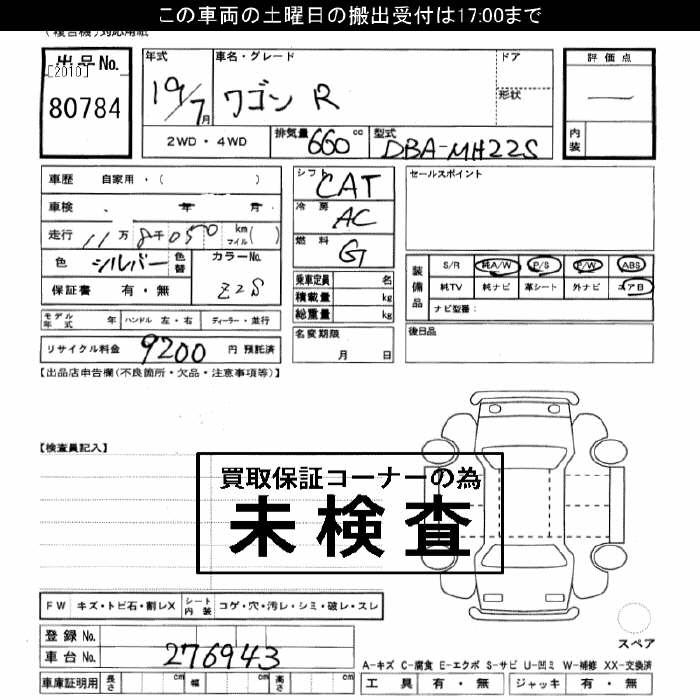 この車両の土曜日の搬出受付は17:00まで
出品No.
[2010]
80784
年式
19/7月
車名・グレード
ワゴン R
ドア
形状
評価点
—
内装
2WD・4WD
排気量 660 cc
型式 DBA-MH22S
車歴 自家用・( )
車検 年 月
走行 11万8千050 km マイル( )
色 シルバー 色替
カラーNo. Z2S
保証書 有・無
シフト CAT
冷房 AC
燃料 G
乗車定員 名
積載量 kg
総重量 kg
名変期限
月 日
セールスポイント
装備品
S/R 純A/W P/S P/W ABS
純TV 純ナビ 革シート 外ナビ エアB
ナビ型番:
後日品
モデル年式 年 ハンドル 左・右 ディーラー・並行
リサイクル料金 9200 円 預託済
【出品店申告欄(不良箇所・欠品・注意事項等)】
【検査員記入】
買取保証コーナーの為
未検査
FW キズ・トビ石・割レX シート内装 コゲ・穴・汚レ・シミ・破レ・スレ
登録No.
車台No. 276943
車庫証明用 長さ cm 幅 cm 高さ cm
スペア
A-キズ C-腐食 E-エクボ S-サビ U-凹ミ W-補修 XX-交換済
工具 有・無 ジャッキ 有・無